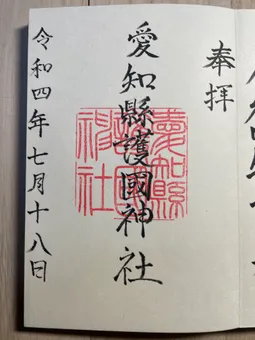 奉拝
愛知縣護國神社
令和四年七月十八日
愛知縣
護國
神社